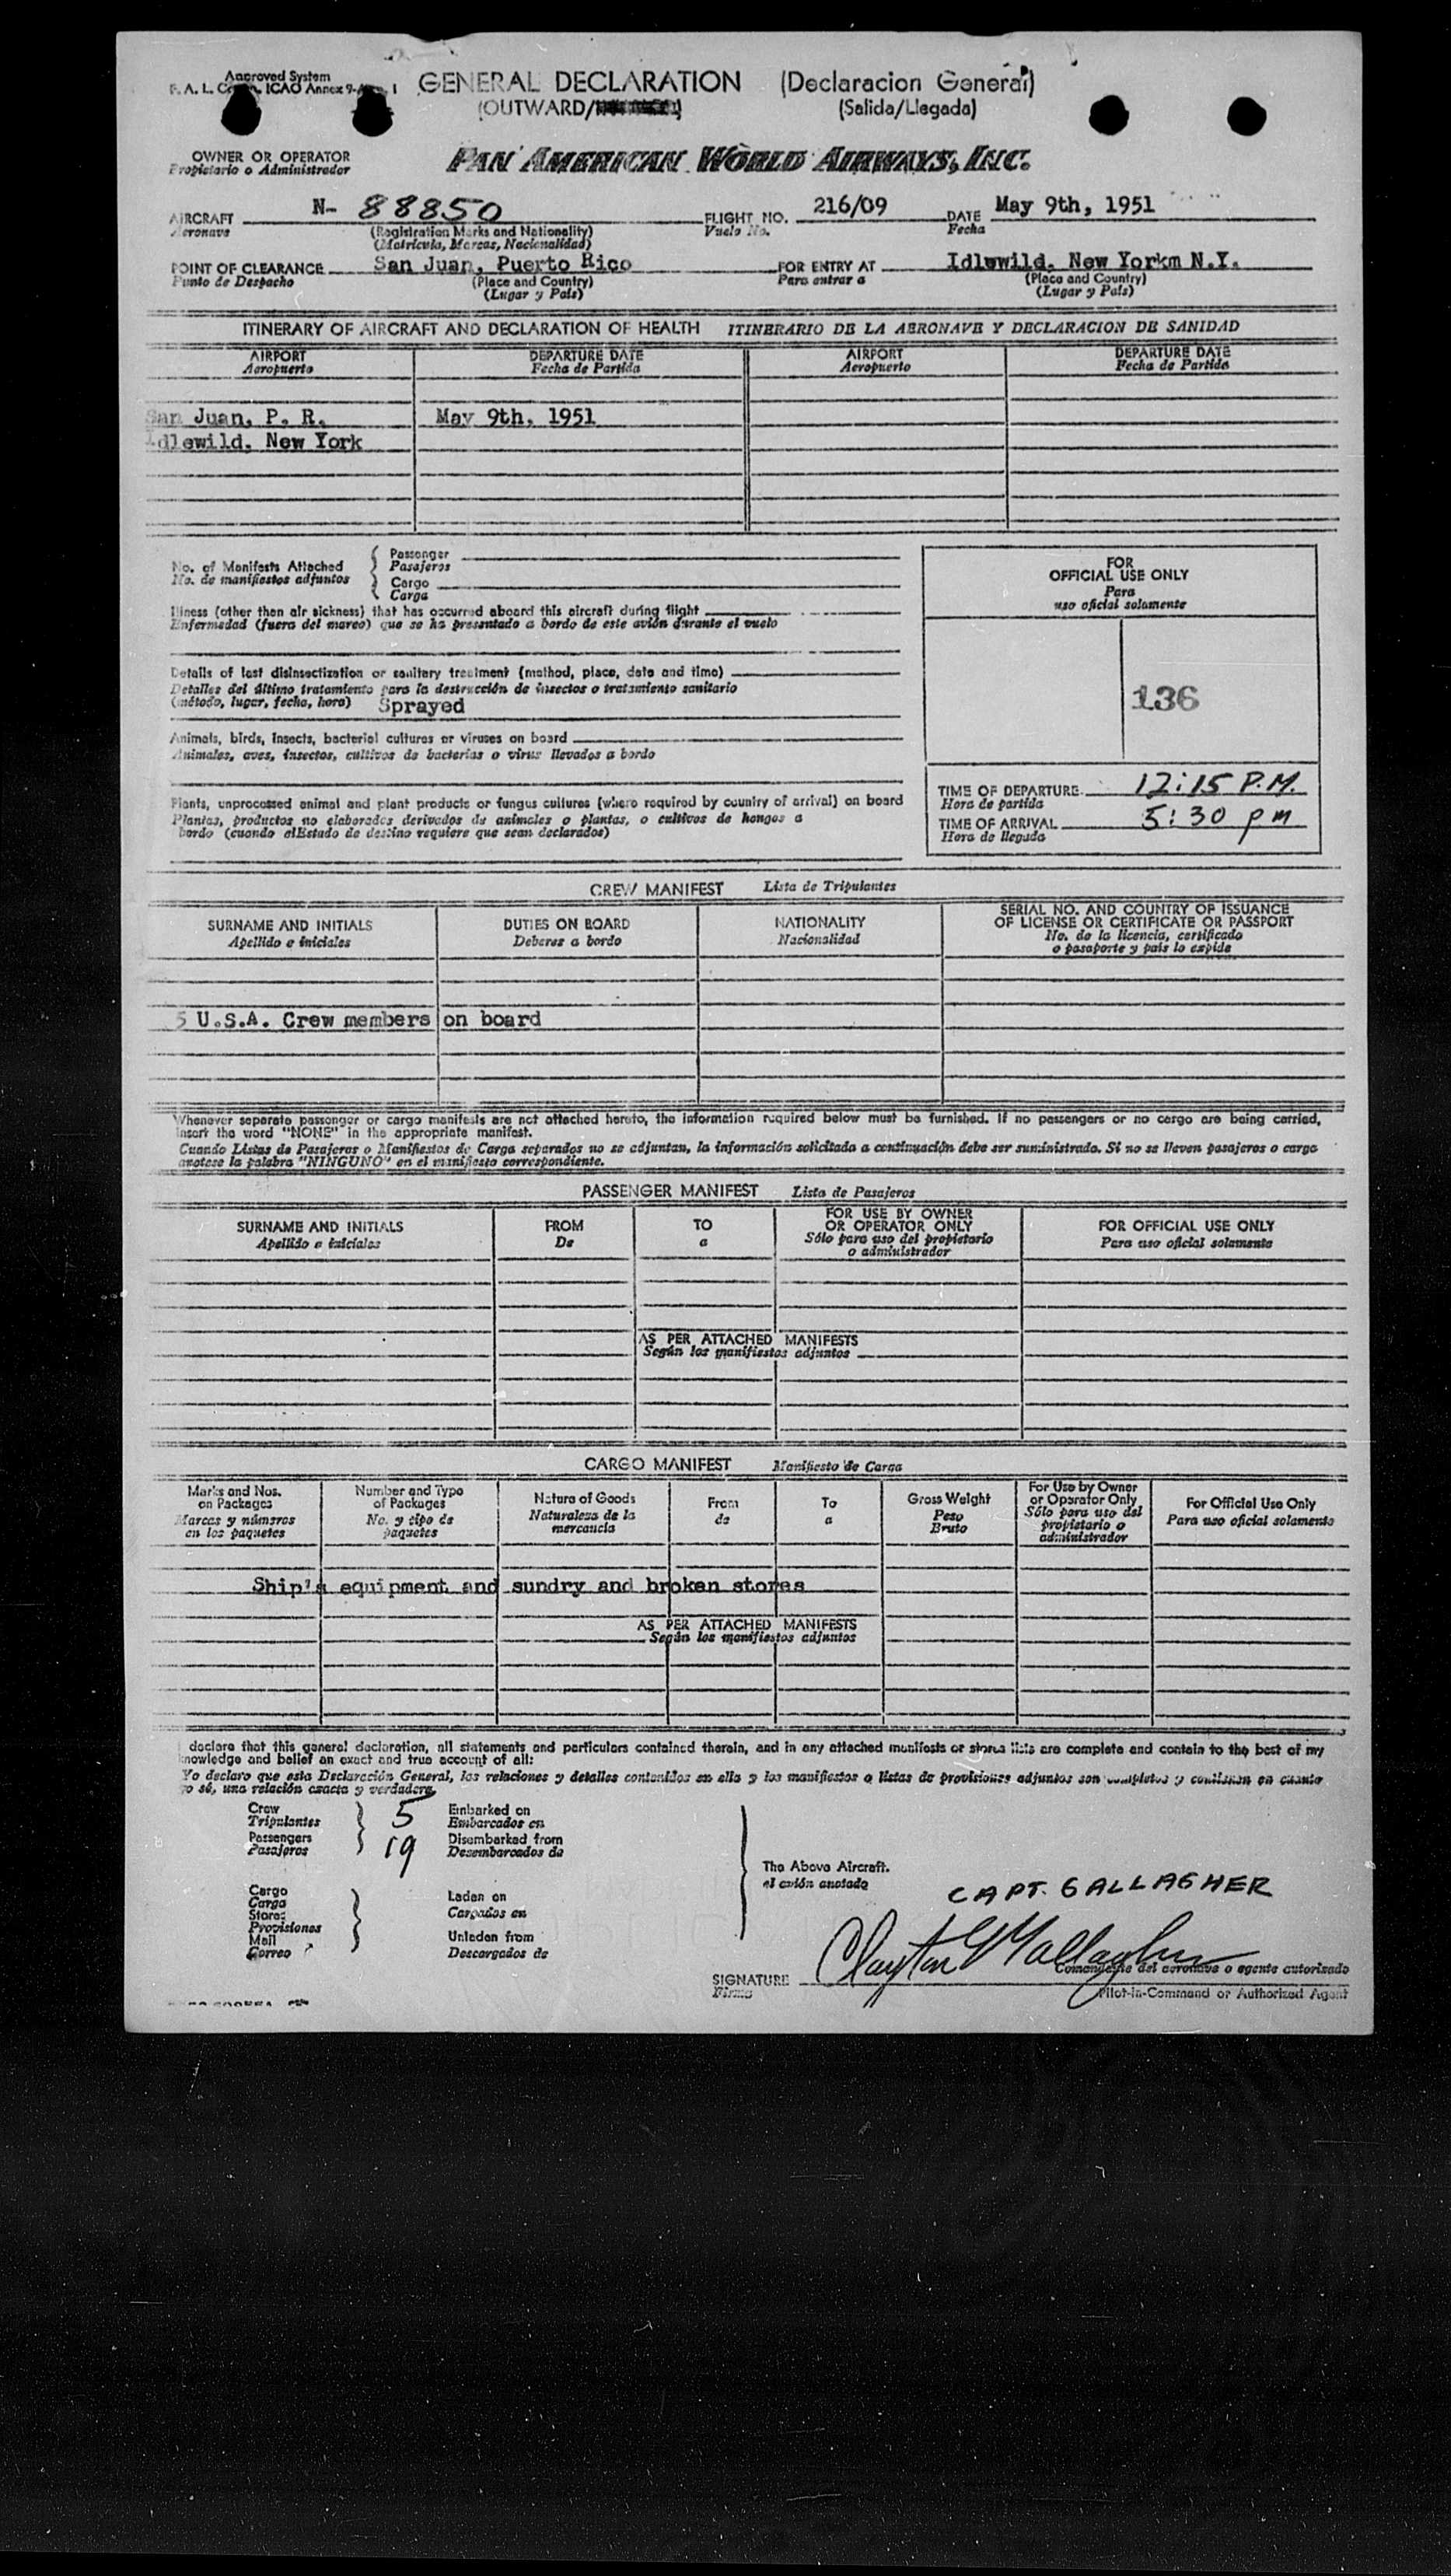 Approved System
F. A. L. ICAO Annex 9- 1
GENERAL DECLARATION (Declaracion General)
(OUTWARD/ (Salida/Llegada)
OWNER OR OPERATOR
Propietario o Administrador
PAN AMERICAN WORLD AIRWAYS, INC.
AIRCRAFT N- 88850 FLIGHT NO. 216/09 DATE May 9th, 1951
Aeronave (Registration Marks and Nationality) Vuelo No. Fecha
(Matricula, Marcas, Nacionalidad)
POINT OF CLEARANCE San Juan, Puerto Rico FOR ENTRY AT Idlewild, New Yorkm N.Y.
Punto de Despacho (Place and Country) Para entrar a (Place and Country)
(Lugar y País) (Lugar y País)
ITINERARY OF AIRCRAFT AND DECLARATION OF HEALTH ITINERARIO DE LA AERONAVE Y DECLARACION DE SANIDAD
AIRPORT DEPARTURE DATE AIRPORT DEPARTURE DATE
Aeropuerto Fecha de Partida Aeropuerto Fecha de Partida
San Juan, P. R. May 9th, 1951
Idlewild, New York
No. of Manifests Attached
No. de manifiestos adjuntos
Passenger
Pasajeros
Cargo
Carga
Illness (other than air sickness) that has occurred aboard this aircraft during flight
Enfermedad (fuera del mareo) que se ha presentado a bordo de este avión durante el vuelo
Details of last disinsectization or sanitary treatment (method, place, date and time)
Detalles del último tratamiento para la destrucción de insectos o tratamiento sanitario
(método, lugar, fecha, hora) Sprayed
Animals, birds, insects, bacterial cultures or viruses on board
Animales, aves, insectos, cultivos de bacterias o virus llevados a bordo
Plants, unprocessed animal and plant products or fungus cultures (where required by country of arrival) on board
Plantas, productos no elaborados derivados de animales o plantas, o cultivos de hongos a
bordo (cuando elEstado de destino requiere que sean declarados)
FOR
OFFICIAL USE ONLY
Para
uso oficial solamente
136
TIME OF DEPARTURE 12:15 P.M.
Hora de partida
TIME OF ARRIVAL 5:30 pm
Hora de llegada
CREW MANIFEST Lista de Tripulantes
SURNAME AND INITIALS DUTIES ON BOARD NATIONALITY SERIAL NO. AND COUNTRY OF ISSUANCE
OF LICENSE OR CERTIFICATE OR PASSPORT
Apellido e iniciales Deberes a bordo Nacionalidad No. de la licencia, certificado
o pasaporte y país lo expide
5 U.S.A. Crew members on board
Whenever separate passenger or cargo manifests are not attached hereto, the information required below must be furnished. If no passengers or no cargo are being carried,
insert the word "NONE" in the appropriate manifest.
Cuando Listas de Pasajeros o Manifiestos de Carga separados no se adjuntan, la información solicitada a continuación debe ser suministrada. Si no se lleven pasajeros o carga
anotese la palabra "NINGUNO" en el manifiesto correspondiente.
PASSENGER MANIFEST Lista de Pasajeros
SURNAME AND INITIALS FROM TO FOR USE BY OWNER
OR OPERATOR ONLY FOR OFFICIAL USE ONLY
Apellido e iniciales De a Sólo para uso del propietario
o administrador Para uso oficial solamente
AS PER ATTACHED MANIFESTS
Según los manifiestos adjuntos
CARGO MANIFEST Manifiesto de Carga
Marks and Nos.
on Packages
Marcas y números
en los paquetes
Number and Type
of Packages
No. y tipo de
paquetes
Nature of Goods
Naturaleza de la
mercancia
From
de
To
a
Gross Weight
Peso
Bruto
For Use by Owner
or Operator Only
Sólo para uso del
propietario o
administrador
For Official Use Only
Para uso oficial solamente
Ship's equipment and sundry and broken stores
AS PER ATTACHED MANIFESTS
Según los manifiestos adjuntos
I declare that this general declaration, all statements and particulars contained therein, and in any attached manifests or stores lists are complete and contain to the best of my
knowledge and belief an exact and true account of all:
Yo declaro que esta Declaración General, las relaciones y detalles contenidos en ella y los manifiestos o listas de provisiones adjuntos son completos y contienen en cuanto
yo sé, una relación exacta y verdadera
Crew
Tripulantes 5
Passengers
Pasajeros 19
Embarked on
Embarcados en
Disembarked from
Desembarcados de
Cargo
Carga
Stores
Provisiones
Mail
Correo
Laden on
Cargados en
Unladen from
Descargados de
The Above Aircraft.
el avión anotado
CAPT. GALLAGHER
SIGNATURE Clayton Gallagher
Firma
Comandante del aeronave o agente autorizado
Pilot-in-Command or Authorized Agent